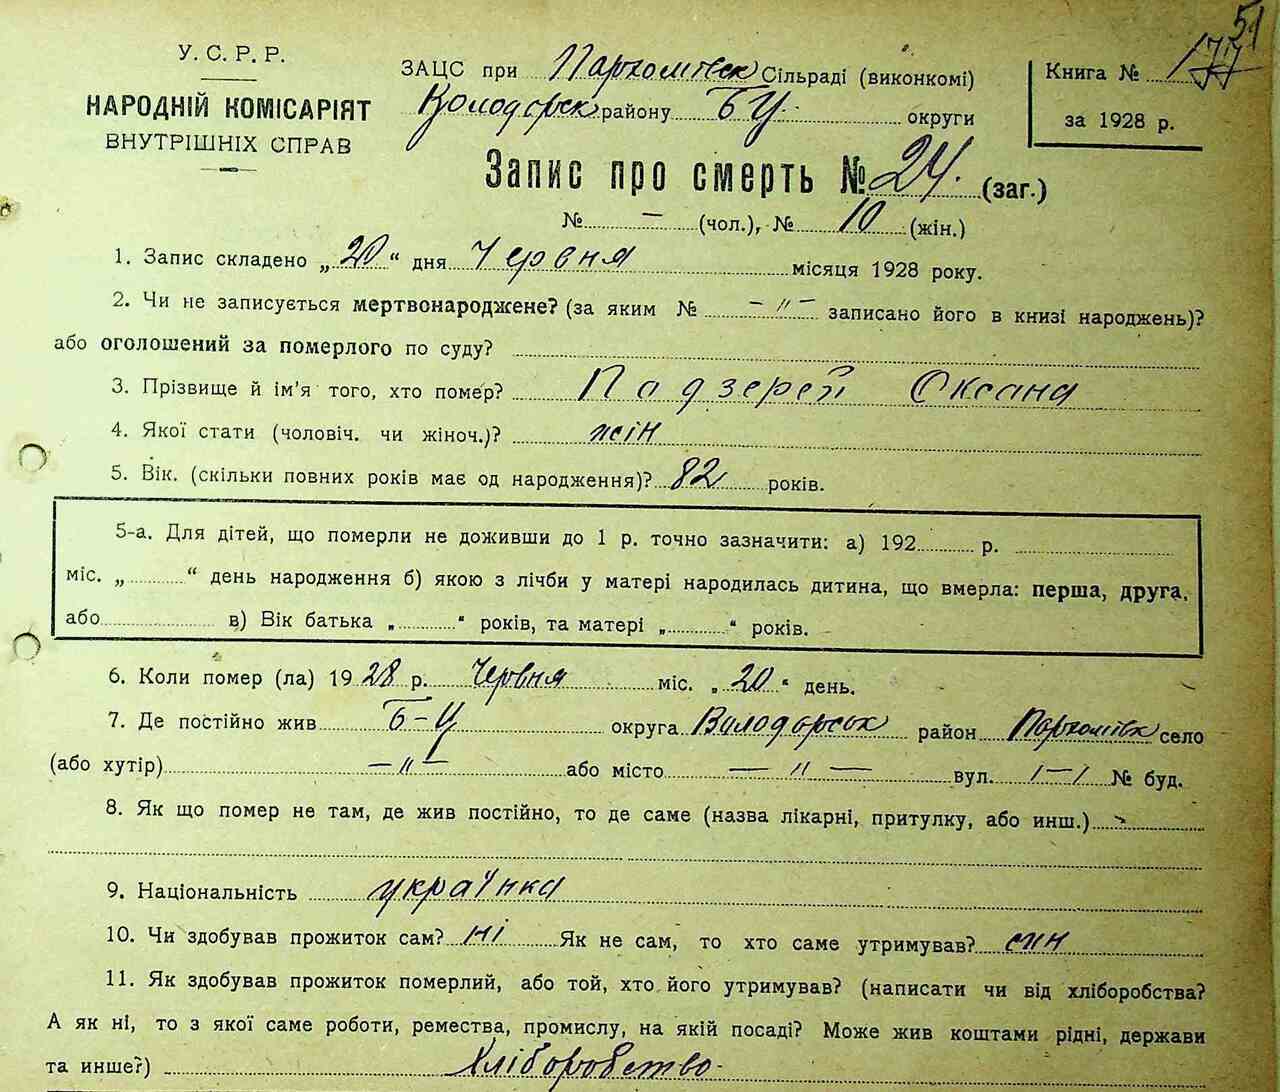 51
У. С. Р. Р.
НАРОДНІЙ КОМІСАРІЯТ
ВНУТРІШНІХ СПРАВ
ЗАЦС при Пархомівск Сільраді (виконкомі)
Володарськ району БЦ округи
Книга № 177
за 1928 р.
Запис про смерть № 24. (заг.)
№ — (чол.), № 10 (жін.)
1. Запис складено „20“ дня Червня місяця 1928 року.
2. Чи не записується мертвонароджене? (за яким № -〃- записано його в книзі народжень)?
або оголошений за померлого по суду?
3. Прізвище й ім'я того, хто помер? Падзерей Оксана
4. Якої стати (чоловіч. чи жіноч.)? жін
5. Вік. (скільки повних років має од народження)? 82 років.
5-а. Для дітей, що померли не доживши до 1 р. точно зазначити: а) 192 р.
міс. „ “ день народження б) якою з лічби у матері народилась дитина, що вмерла: перша, друга,
або в) Вік батька „ “ років, та матері „ “ років.
6. Коли помер (ла) 1928 р. Червня міс. „20“ день.
7. Де постійно жив Б-Ц округа Володорськ район Пархомівк село
(або хутір) -〃- або місто — 〃 — вул. 1—1 № буд.
8. Як що помер не там, де жив постійно, то де саме (назва лікарні, притулку, або инш.)
9. Національність українка
10. Чи здобував прожиток сам? ні Як не сам, то хто саме утримував? син
11. Як здобував прожиток померлий, або той, хто його утримував? (написати чи від хліборобства?
А як ні, то з якої саме роботи, ремества, промислу, на якій посаді? Може жив коштами рідні, держави
та инше?) Хліборобство.